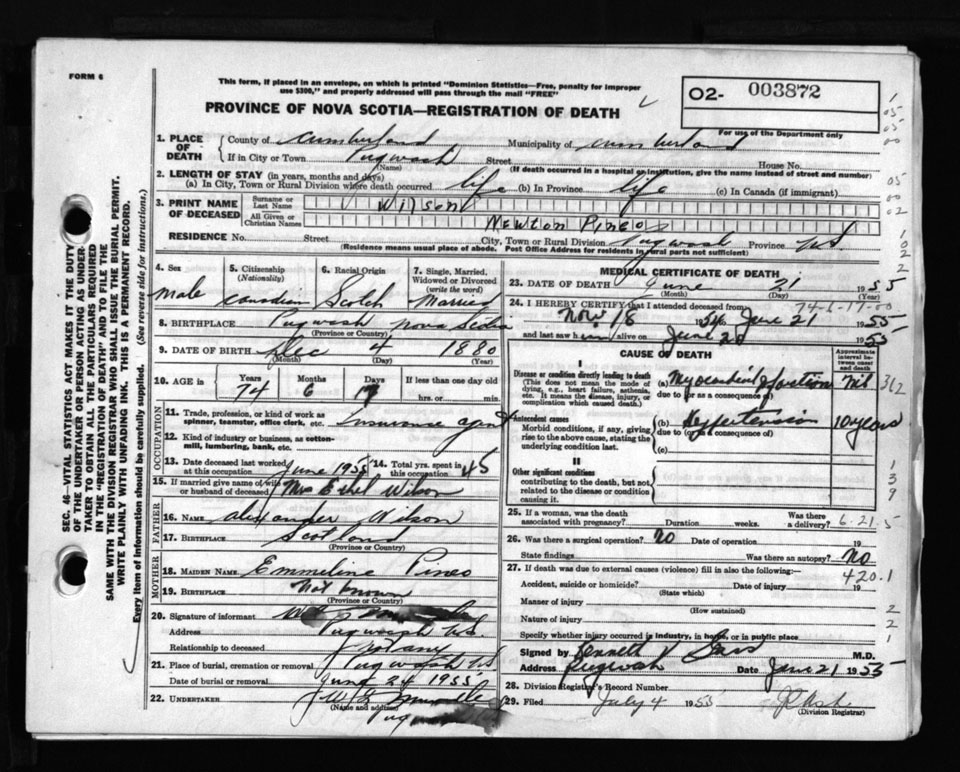 FORM 6
This form, if placed in an envelope, on which is printed "Dominion Statistics—Free, penalty for improper
use $300," and properly addressed will pass through the mail "FREE"
PROVINCE OF NOVA SCOTIA—REGISTRATION OF DEATH
O2- 003872
For use of the Department only
SEC. 46—VITAL STATISTICS ACT MAKES IT THE DUTY
OF THE UNDERTAKER OR PERSON ACTING AS UNDER-
TAKER TO OBTAIN ALL THE PARTICULARS REQUIRED
IN THE "REGISTRATION OF DEATH" AND TO FILE THE
SAME WITH THE DIVISION REGISTRAR WHO SHALL ISSUE THE BURIAL PERMIT.
WRITE PLAINLY WITH UNFADING INK. THIS IS A PERMANENT RECORD.
Every item of information should be carefully supplied. (See reverse side for instructions.)
1. PLACE OF DEATH County of Cumberland Municipality of Cumberland
If in City or Town Pugwash Street House No.
(Name) (If death occurred in a hospital or institution, give the name instead of street and number)
2. LENGTH OF STAY (in years, months and days)
(a) In City, Town or Rural Division where death occurred life (b) In Province life (c) In Canada (if immigrant)
3. PRINT NAME OF DECEASED Surname or Last Name Wilson
All Given or Christian Names Newton Pineo
RESIDENCE No. Street City, Town or Rural Division Pugwash Province N.S.
(Residence means usual place of abode. Post Office Address for residents in rural parts not sufficient)
4. Sex 5. Citizenship (Nationality) 6. Racial Origin 7. Single, Married, Widowed or Divorced (write the word)
Male Canadian Scotch Married
8. BIRTHPLACE Pugwash Nova Scotia
(Province or Country)
9. DATE OF BIRTH Dec 4 1880
(Month) (Day) (Year)
10. AGE in Years Months Days If less than one day old
74 6 17 hrs. or min.
OCCUPATION
11. Trade, profession, or kind of work as spinner, teamster, office clerk, etc. Insurance agent
12. Kind of industry or business, as cotton-mill, lumbering, bank, etc.
13. Date deceased last worked at this occupation June 1955 14. Total yrs. spent in this occupation 45
15. If married give name of wife or husband of deceased Mrs Ethel Wilson
FATHER
16. NAME Alexander Wilson
17. BIRTHPLACE Scotland
(Province or Country)
MOTHER
18. MAIDEN NAME Emmeline Pineo
19. BIRTHPLACE Not known
(Province or Country)
20. Signature of informant
Address Pugwash N.S.
Relationship to deceased
21. Place of burial, cremation or removal Pugwash N.S.
Date of burial or removal June 24 1955
22. UNDERTAKER
(Name and address)
MEDICAL CERTIFICATE OF DEATH
23. DATE OF DEATH June 21 1955
(Month) (Day) (Year)
24. I HEREBY CERTIFY that I attended deceased from 74-6-17-00
Nov 18 1954 June 21 1955
and last saw him alive on June 20 1955
CAUSE OF DEATH
Approximate interval between onset and death
I
Disease or condition directly leading to death
(This does not mean the mode of dying, e.g., heart failure, asthenia, etc. It means the disease, injury, or complication which caused death.)
(a) Myocardial
due to (or as a consequence of)
Antecedent causes
Morbid conditions, if any, giving rise to the above cause, stating the underlying condition last.
(b) Hypertension 10 years
due to (or as a consequence of)
(c)
II
Other significant conditions
contributing to the death, but not related to the disease or condition causing it.
25. If a woman, was the death associated with pregnancy? Duration weeks. Was there a delivery? 6.21.5
26. Was there a surgical operation? No Date of operation 19
State findings Was there an autopsy? No
27. If death was due to external causes (violence) fill in also the following:— 420.1
Accident, suicide or homicide? Date of injury 19
(State which)
Manner of injury
(How sustained)
Nature of injury
Specify whether injury occurred in industry, in home, or in public place
Signed by Kenneth V M.D.
Address Pugwash Date June 21 1955
28. Division Registrar's Record Number
29. Filed July 4 1955
(Division Registrar)